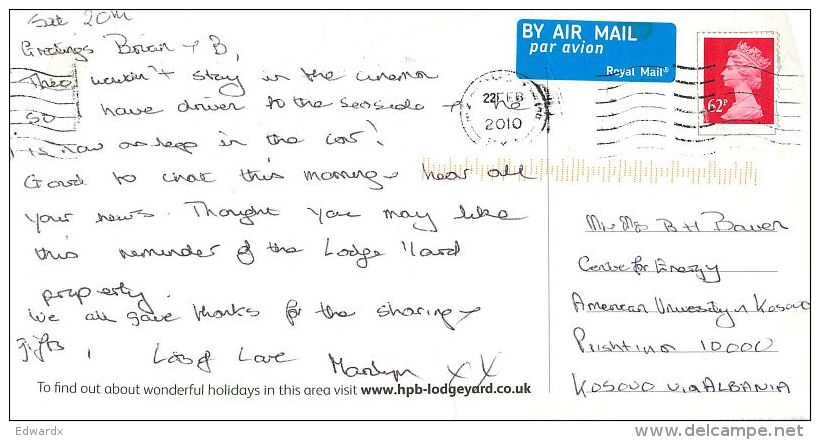 Sat 20th
Greetings Brian + B,
Theo wouldn't stay in the cinema
so have driven to the seaside + he
is now asleep in the car!
Good to chat this morning + hear all
your news. Thought you may like
this reminder of the Lodge Yard
property.
We all gave thanks for the sharing +
gifts, Lots of Love Marilyn XX
To find out about wonderful holidays in this area visit www.hpb-lodgeyard.co.uk
BY AIR MAIL
par avion
Royal Mail®
22 FEB
2010
62P
B H Bauer
Centre for Energy
American University in Kosovo
Prishtina 10000
KOSOVO via ALBANIA
Edwardx
delcampe.net